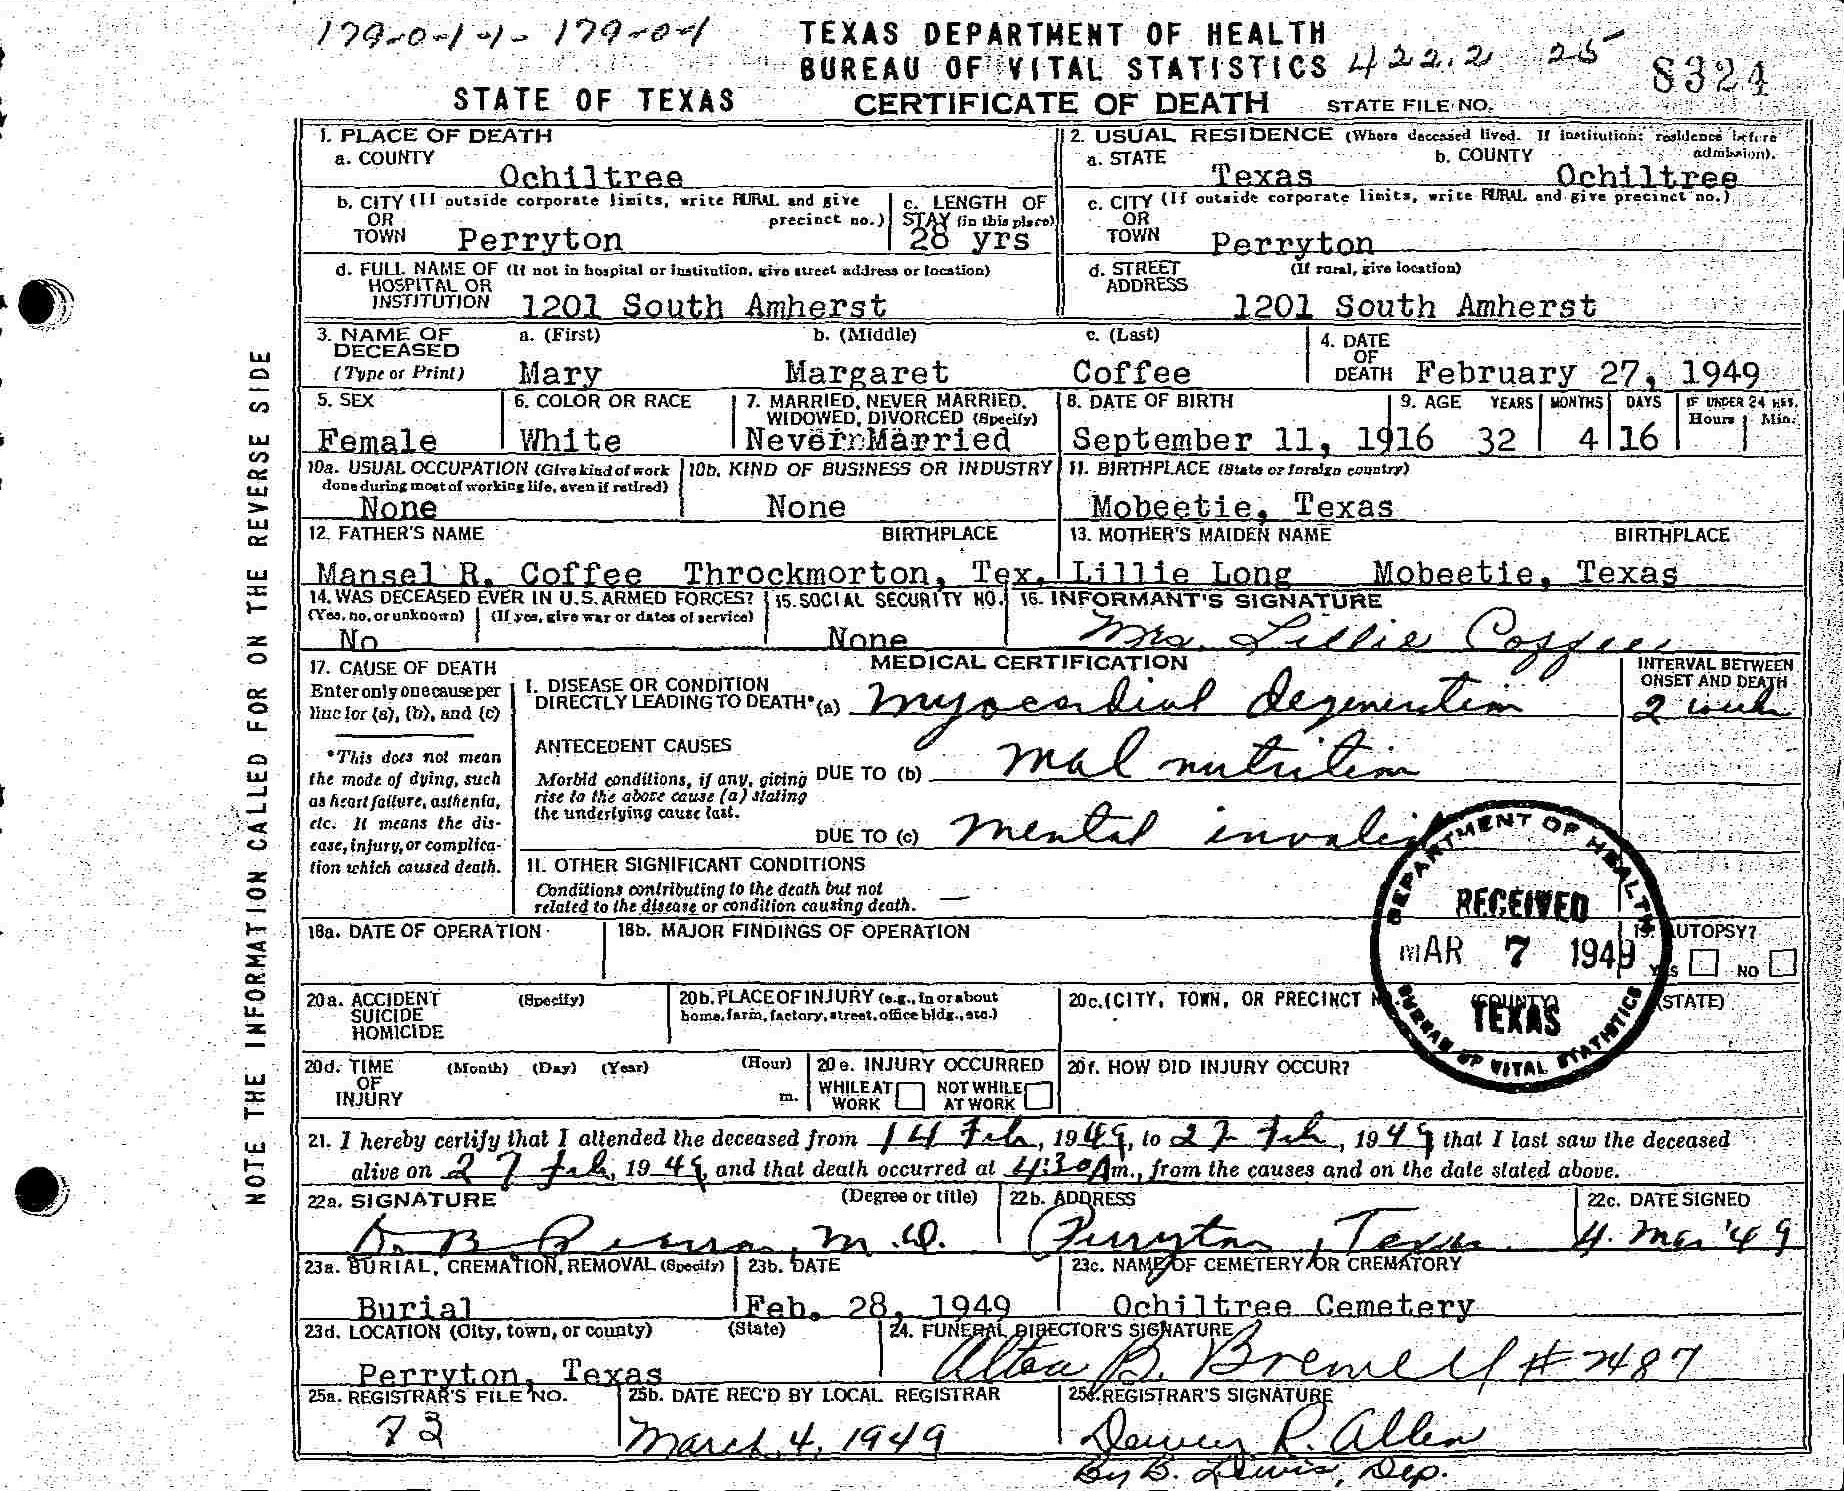 179-0-1-1- 179-0-1
TEXAS DEPARTMENT OF HEALTH
BUREAU OF VITAL STATISTICS 422.2 25 8324
STATE OF TEXAS CERTIFICATE OF DEATH STATE FILE NO.
1. PLACE OF DEATH
a. COUNTY
Ochiltree
2. USUAL RESIDENCE (Where deceased lived. If institution: residence before admission).
a. STATE b. COUNTY
Texas Ochiltree
b. CITY (If outside corporate limits, write RURAL and give precinct no.)
OR
TOWN Perryton
c. LENGTH OF
STAY (in this place)
28 yrs
c. CITY (If outside corporate limits, write RURAL and give precinct no.)
OR
TOWN Perryton
d. FULL NAME OF (If not in hospital or institution, give street address or location)
HOSPITAL OR
INSTITUTION 1201 South Amherst
d. STREET (If rural, give location)
ADDRESS
1201 South Amherst
3. NAME OF a. (First) b. (Middle) c. (Last)
DECEASED
(Type or Print) Mary Margaret Coffee
4. DATE
OF
DEATH February 27, 1949
5. SEX
Female
6. COLOR OR RACE
White
7. MARRIED, NEVER MARRIED,
WIDOWED, DIVORCED (Specify)
Never Married
8. DATE OF BIRTH
September 11, 1916
9. AGE YEARS MONTHS DAYS IF UNDER 24 HRS.
Hours Min.
32 4 16
10a. USUAL OCCUPATION (Give kind of work
done during most of working life, even if retired)
None
10b. KIND OF BUSINESS OR INDUSTRY
None
11. BIRTHPLACE (State or foreign country)
Mobeetie, Texas
12. FATHER'S NAME BIRTHPLACE
Mansel R. Coffee Throckmorton, Tex.
13. MOTHER'S MAIDEN NAME BIRTHPLACE
Lillie Long Mobeetie, Texas
14. WAS DECEASED EVER IN U.S. ARMED FORCES?
(Yes, no, or unknown) (If yes, give war or dates of service)
No
15. SOCIAL SECURITY NO.
None
16. INFORMANT'S SIGNATURE
Mrs. Lillie Coffee
17. CAUSE OF DEATH
Enter only one cause per
line for (a), (b), and (c)
*This does not mean
the mode of dying, such
as heart failure, asthenia,
etc. It means the dis-
ease, injury, or complica-
tion which caused death.
MEDICAL CERTIFICATION
INTERVAL BETWEEN
ONSET AND DEATH
I. DISEASE OR CONDITION
DIRECTLY LEADING TO DEATH* (a) Myocardial degeneration 2 weeks
ANTECEDENT CAUSES
Morbid conditions, if any, giving
rise to the above cause (a) stating
the underlying cause last.
DUE TO (b) mal nutrition
DUE TO (c) mental invalid
II. OTHER SIGNIFICANT CONDITIONS
Conditions contributing to the death but not
related to the disease or condition causing death. —
18a. DATE OF OPERATION
18b. MAJOR FINDINGS OF OPERATION
19. AUTOPSY?
YES NO
DEPARTMENT OF HEALTH
RECEIVED
MAR 7 1949
TEXAS
BUREAU OF VITAL STATISTICS
20a. ACCIDENT (Specify)
SUICIDE
HOMICIDE
20b. PLACE OF INJURY (e.g., in or about
home, farm, factory, street, office bldg., etc.)
20c. (CITY, TOWN, OR PRECINCT (COUNTY) (STATE)
20d. TIME (Month) (Day) (Year) (Hour)
OF
INJURY m.
20e. INJURY OCCURRED
WHILE AT WORK NOT WHILE AT WORK
20f. HOW DID INJURY OCCUR?
21. I hereby certify that I attended the deceased from 14 Feb, 1949, to 27 Feb, 1949 that I last saw the deceased
alive on 27 Feb, 1949, and that death occurred at 4:30 Am., from the causes and on the date stated above.
22a. SIGNATURE (Degree or title)
D. B. Pearson, M.D.
22b. ADDRESS
Perryton, Texas
22c. DATE SIGNED
4. Mar '49
23a. BURIAL, CREMATION, REMOVAL (Specify)
Burial
23b. DATE
Feb. 28, 1949
23c. NAME OF CEMETERY OR CREMATORY
Ochiltree Cemetery
23d. LOCATION (City, town, or county) (State)
Perryton, Texas
24. FUNERAL DIRECTOR'S SIGNATURE
B. #2487
25a. REGISTRAR'S FILE NO.
73
25b. DATE REC'D BY LOCAL REGISTRAR
March 4, 1949
25c. REGISTRAR'S SIGNATURE
R. Allen
By B. Lewis, Dep.
NOTE THE INFORMATION CALLED FOR ON THE REVERSE SIDE